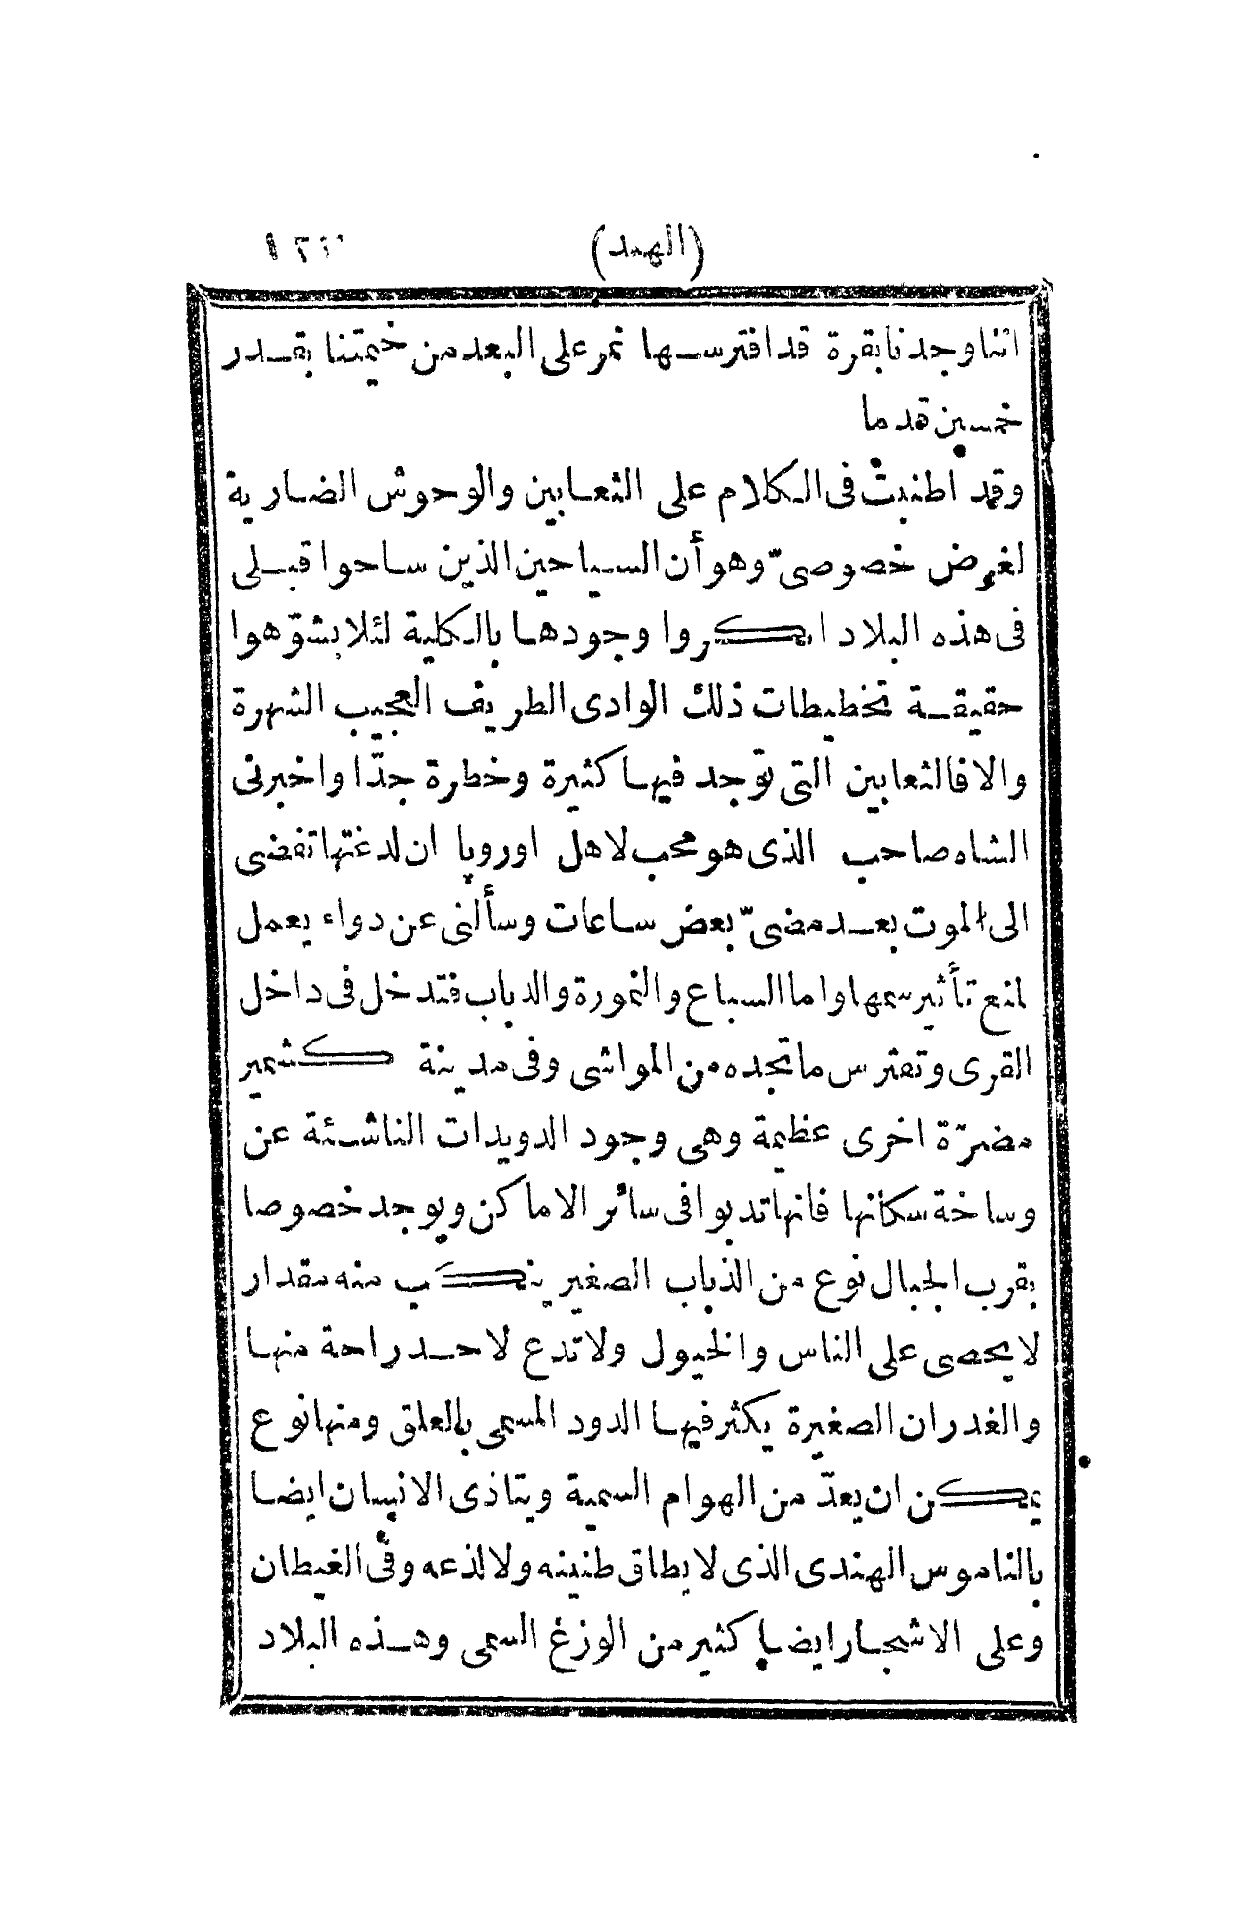 (الهند)
اننا وجدنا بقرة قد افترسها نمر على البعد من خيمتنا بقدر
خمسين قدما
وقد اطنبت فى الكلام على الثعابين والوحوش الضارية
لغرض خصوصىّ وهو أن السياحين الذين ساحوا قبلى
فى هذه البلاد انكروا وجودها بالكلية لئلا يشوّهوا
حقيقة تخطيطات ذلك الوادى الطريف العجيب الشهرة
والا فالثعابين التى توجد فيها كثيرة وخطرة جدّا واخبرنى
الشاه صاحب الذى هو محب لاهل اوروپا ان لدغتها تفضى
الى الموت بعد مضىّ بعض ساعات وسألنى عن دواء يعمل
لمنع تأثير سمها واما السباع والنمورة والدباب فتدخل فى داخل
القرى وتفترس ما تجده من المواشى وفى مدينة كشمير
مضرّة اخرى عظيمة وهى وجود الدويدات الناشئة عن
وساخة سكانها فانها تدبوا فى سائر الاماكن ويوجد خصوصا
بقرب الجبال نوع من الذباب الصغير ينكب منه مقدار
لا يحصى على الناس والخيول ولا تدع لاحد راحة منها
والغدران الصغيرة يكثر فيها الدود المسمى بالعلق ومنها نوع
يمكن ان يعدّ من الهوام السمية ويتاذى الانسان ايضا
بالناموس الهندى الذى لا يطاق طنينه ولا لذعه وفى الغيطان
وعلى الاشجار ايضا كثير من الوزغ السمى وهذه البلاد